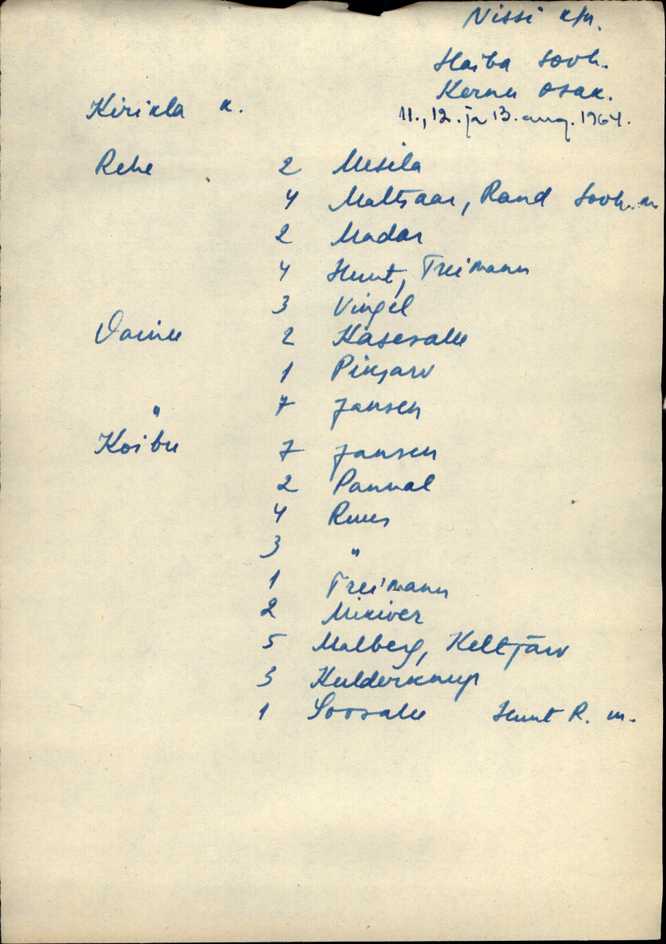 Nissi khn.
Haiba sovh.
Kernu osak.
Kirikla k. 11., 12. ja 13. aug. 1964.
Rehe 2 Mesila
4 Maltsaar, Rand sovh. m
2 Madar
4 Hunt, Treimann
3 Vingel
2 Kasesalu
1 Pinsarv
" 7 Jansen
Koibu 7 Jansen
2 Pannal
4 Ruus
3 "
1 Treimann
2 Mikiver
5 Malberg, Keltjärv
3 Kulderknup
1 Soosalu Hunt R. m.